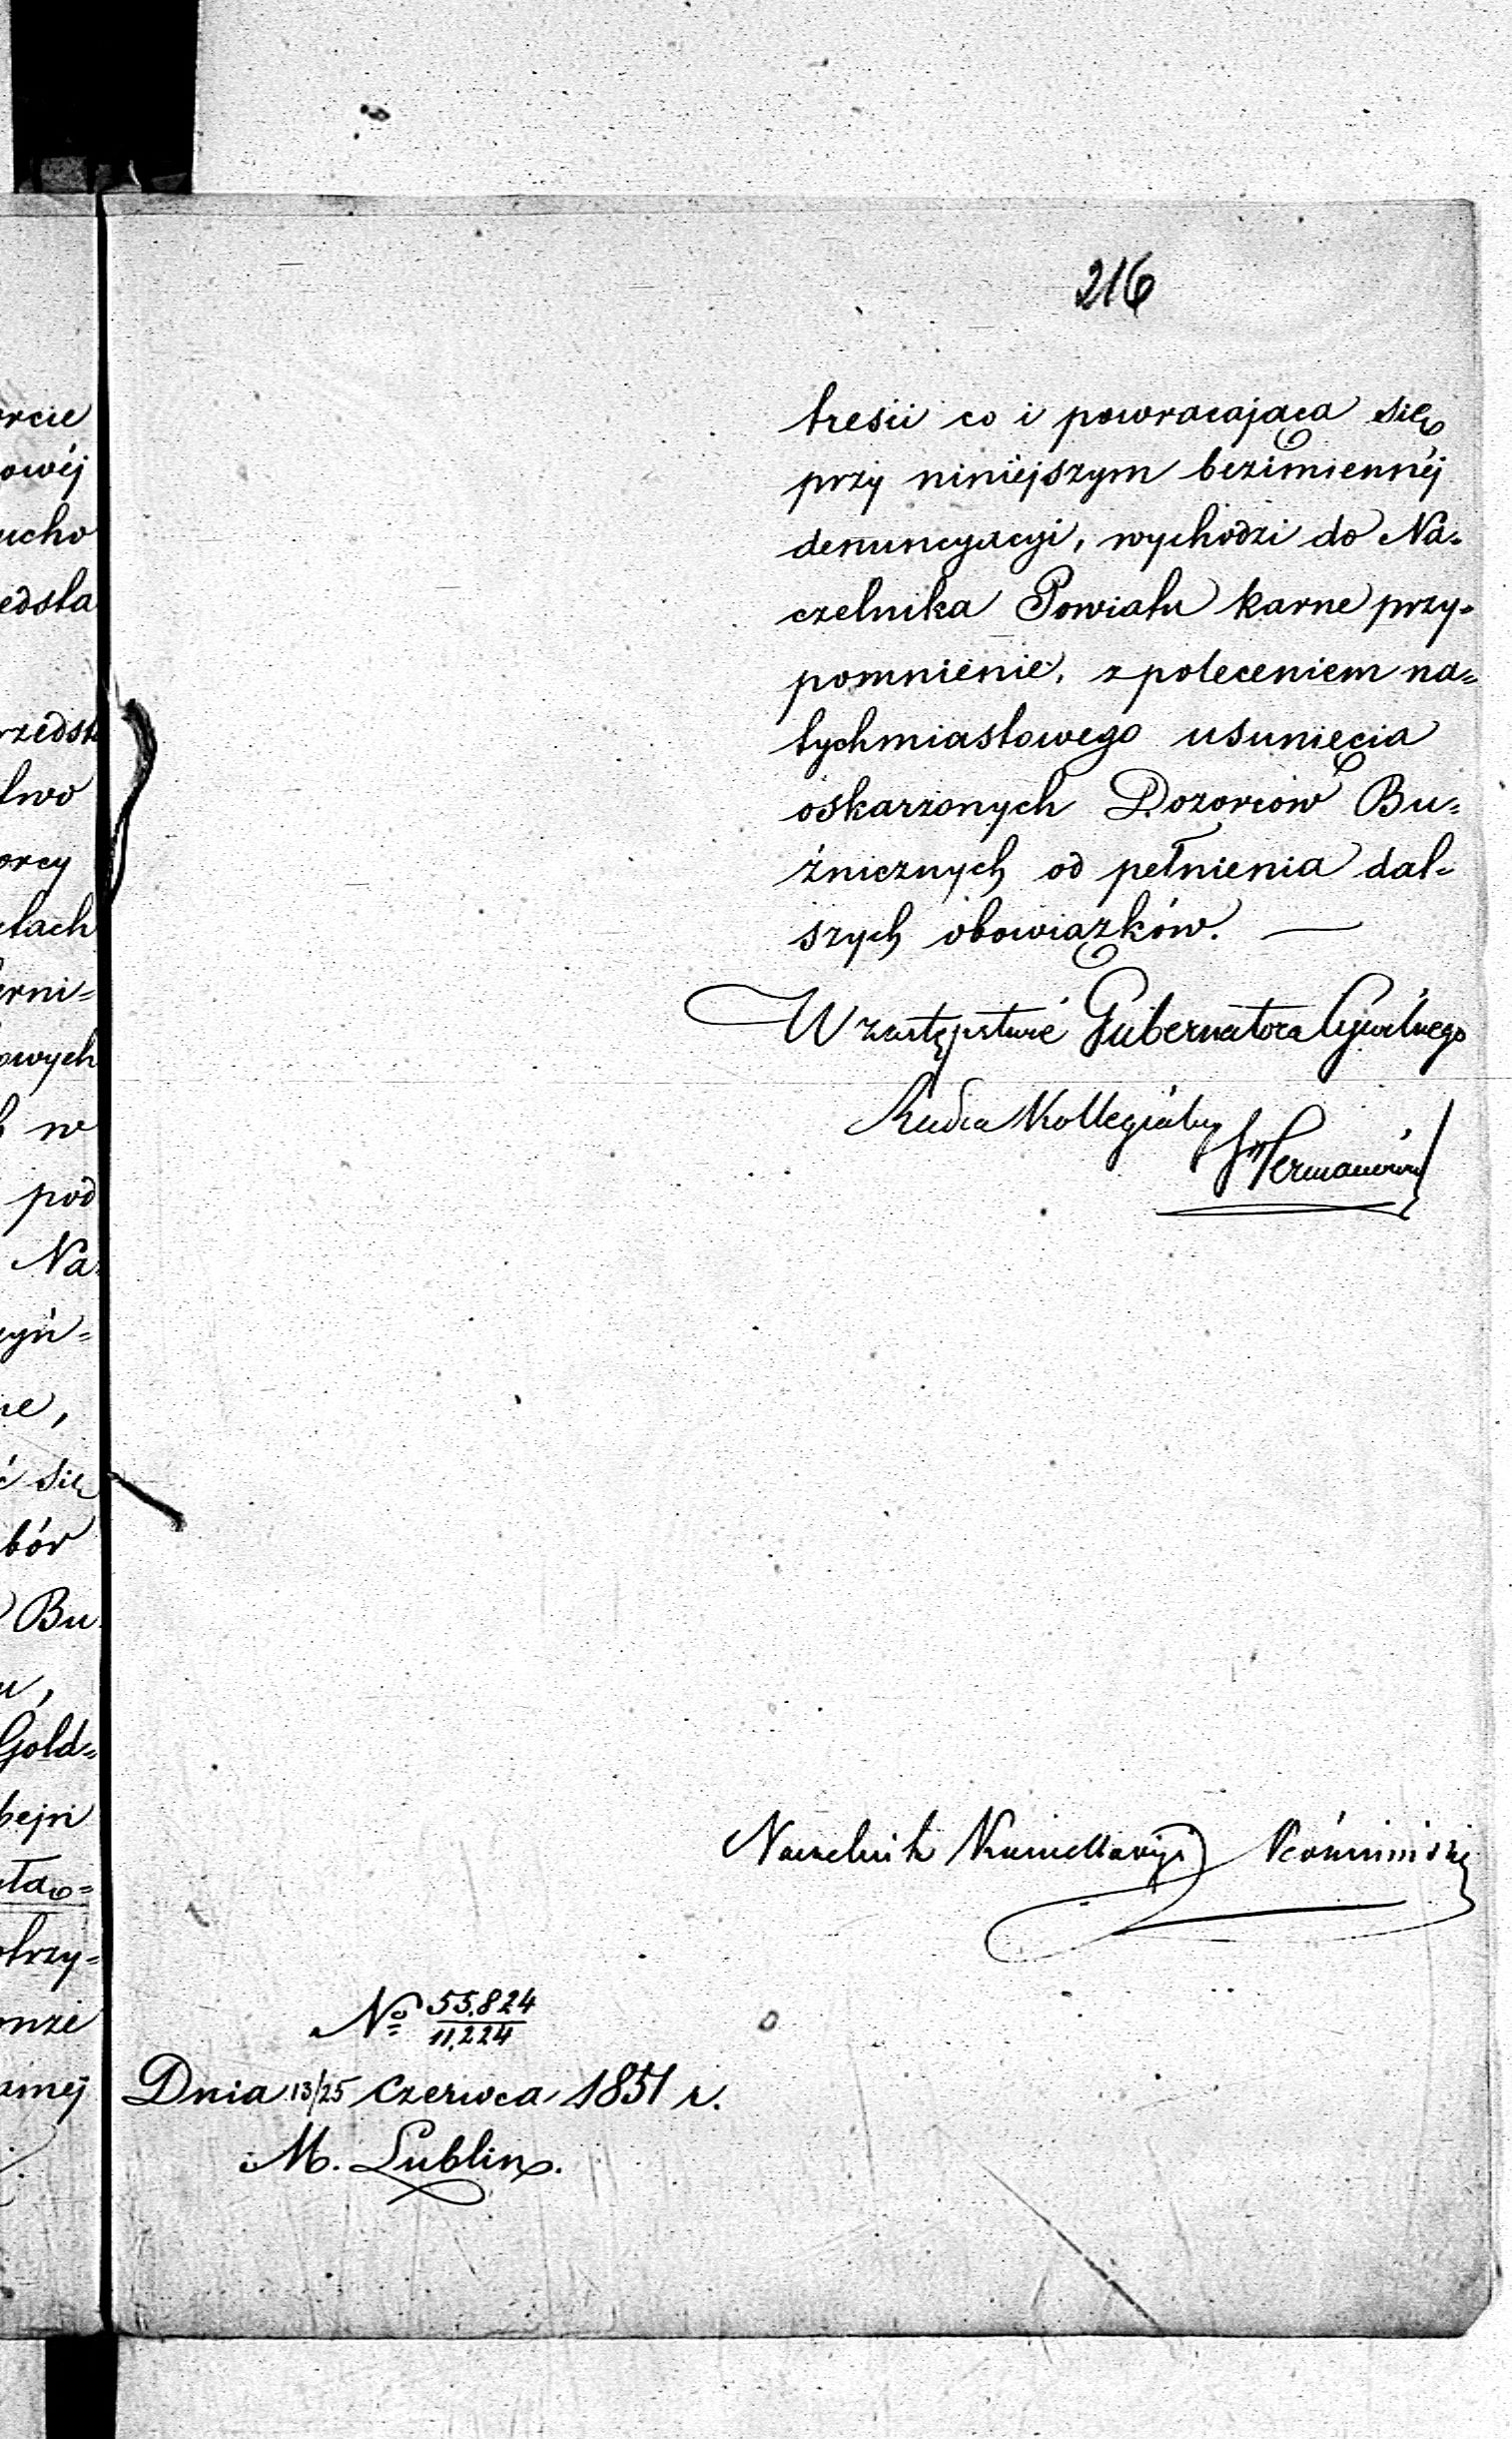 216
treści co i powracająca się
przy niniéjszym bezimiennéj
denuncyacyi, wychodzi do Na-
czelnika Powiatu karne przy-
pomnienie, z poleceniem na-
tychmiastowego usunięcia
oskarzonych Dozorców Bu-
żnicznych od pełnienia dal-
szych obowiązków. —
W zastępstwie Gubernatora Cywilnego
Radca Kollegialny
Naczelnik Kancellaryi
№ 55.824
11,224
Dnia 13/25 Czerwca 1851 r.
M. Lublin.
rcie
owéj
ucho
edsta
rzedst
two
orcy
ctach
erni-
owych
w
pod
Na-
zyń-
ie,
ć się
bór
Bu-
u,
Gold-
bejn
trzy-
onże